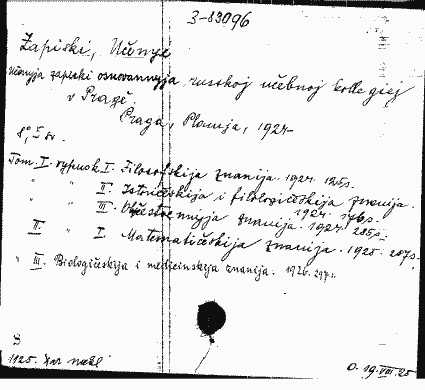 3-83096
Zapiski, Učenyje
Učenyja zapiski osnovannyja russkoj učebnoj kollegiej
v Pragě.
Praga, Plamja, 1924-
8°, I sv.
Tom I. vypusk I. Filosofskija znanija. 1924. 125 s.
" " II. Istoričeskija i filologičeskija znanija.
1924. 176 s.
" " III. Obščestvennyja znanija. 1924. 285 s.
II. " I. Matematičeskija znanija. 1925. 207 s.
" III. Biologičeskija i medicinskija znanija. 1926.
S
1125.
O. 19.VIII.25